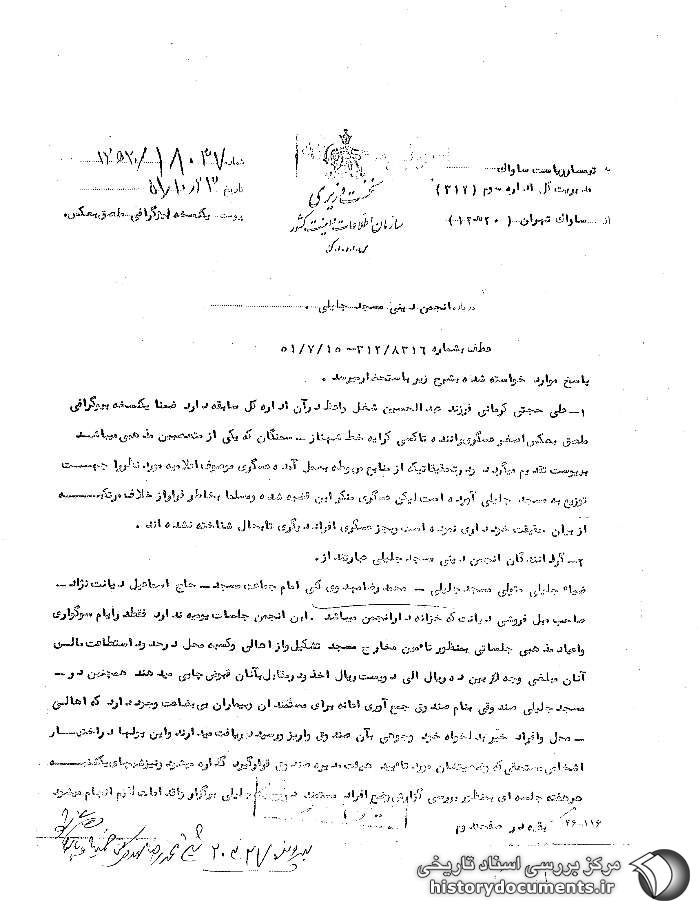 به تیمسار ریاست ساواک
مدیریت کل اداره سوم (۳۱۲)
از ساواک تهران (۲۰ ه ۱۲)
نخست وزیری
سازمان اطلاعات و امنیت کشور
س.ا.و.ا.ک
شماره ۱۸۰۳۷/
تاریخ ۵۱/۱۰/۲۳
پیوست یکنسخه بیوگرافی ملصق بعکس
درباره انجمن دینی مسجد جلیلی .
عطف بشماره ۳۱۲/۸۳۱۶ – ۵۱/۷/۱۵
پاسخ موارد خواسته شده بشرح زیر باستحضار میرسد .
۱– علی حجتی کرمانی فرزند عبدالحسین شغل واعظ در آن اداره کل سابقه دارد ضمنا یکنسخه بیوگرافی
ملصق بعکس اصغر عسگری راننده تاکسی کرایه خط شهناز – سمنگان که یکی از متعصبین مذهبی میباشد
بپیوست تقدیم میگردد در تحقیقاتیکه از منابع مربوطه بعمل آمده عسگری موصوف اعلامیه مورد نظر را جهت
توزیع به مسجد جلیلی آورده است لیکن عسگری منکر این قضیه شده و مسلما بخاطر فرار از خلاف مرتکبه
از بیان حقیقت خودداری نموده است و بجز عسگری افراد دیگری تابحال شناخته نشده اند .
۲– گردانندگان انجمن دینی مسجد جلیلی عبارتند از .
ضیاء جلیلی متولی مسجد جلیلی – محمد رضا مهدوی کنی امام جماعت مسجد – حاج اسماعیل دیانت نژاد –
صاحب مبل فروشی دیانت که خزانه دار انجمن میباشد . این انجمن جلسات یومیه ندارد فقط در ایام سوگواری
و اعیاد مذهبی جلساتی بمنظور تامین مخارج مسجد تشکیل و از اهالی و کسبه محل در حدود استطاعت مالی
آنان مبلغی وجه از بین ده ریال الی دویست ریال اخذ و در مقابل بآنان قبوض چاپی میدهند همچنین در –
مسجد جلیلی صندوقی بنام صندوق جمع آوری اعانه برای مستمندان و بیماران بی بضاعت وجود دارد که اهالی
– محل و افراد خیر بدلخواه خود وجوهی بآن صندوق واریز و رسید دریافت میدارند و این پولها در اختیار
اشخاص مستحقی که وضعیتشان مورد تائید هیئت مدیره صندوق قرار گیرد گذارده میشود و نیز شبهای یکشنبه
هر هفته جلسه ای بمنظور بررسی گزارش وضع افراد مستمند در مسجد جلیلی برگزار و اقدامات لازم انجام میشود
۲۶–۱۱۶
بقیه در صفحه دوم
مرکز بررسی اسناد تاریخی
historydocuments.ir